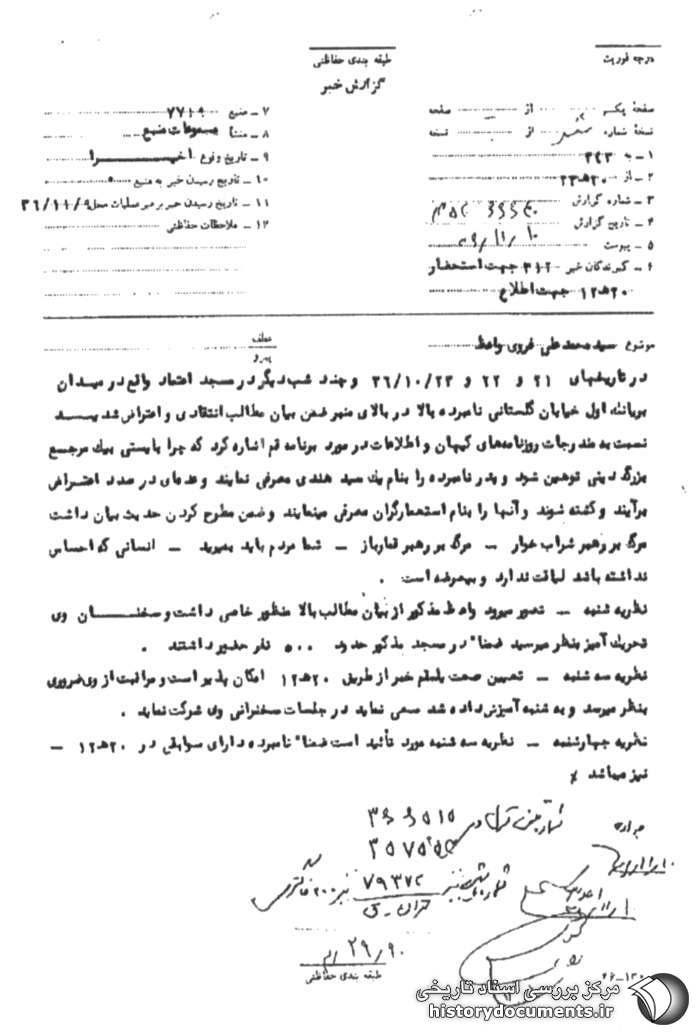 درجه فوریت
طبقه بندی حفاظتی
گزارش خبر
صفحه یکم از صفحه
نسخهٔ شماره از نسخه
۱ ـ به ۳۴۳
۲ ـ از ۲۰ه۲۳
۳ ـ شماره گزارش
۴ ـ تاریخ گزارش
۵ ـ پیوست
۶ ـ گیرندگان خبر ۳۱۲ جهت استحضار
۲۰ه۱۲ جهت اطلاع
۷ ـ منبع ۷۷۱۹
۸ ـ منشأ مسموعات منبع
۹ ـ تاریخ وقوع اخیرا
۱۰ ـ تاریخ رسیدن خبر به منبع
۱۱ ـ تاریخ رسیدن خبر برهبر عملیات محل ۳۶/۱۱/۹
۱۲ ـ ملاحظات حفاظتی
موضوع سید محمد علی غروی واعظ
عطف
پیرو
در تاریخهای ۲۱ و ۲۲ و ۳۶/۱۰/۲۳ و چند شب دیگر در مسجد اعتماد واقع در میدان
بریانک اول خیابان گلستانی نامبرده بالا در بالای منبر ضمن بیان مطالب انتقادی و اعتراض شدید
نسبت به مندرجات روزنامه‌های کیهان و اطلاعات در مورد برنامه قم اشاره کرد که چرا بایستی بیک مرجع
بزرگ دینی توهین شود و پدر نامبرده را بنام یک سید هندی معرفی نمایند و عده‌ای در صدد اعتراض
برآیند و کشته شوند و آنها را بنام استعمارگران معرفی مینمایند و ضمن مطرح کردن حدیث بیان داشت
مرگ بر رهبر شراب خوار ـ مرگ بر رهبر قمارباز ـ شما مردم باید بمیرید ـ انسانی که احساس
نداشته باشد لیاقت ندارد و بیعرضه است .
نظریه شنبه ـ تصور میرود واعظ مذکور از بیان مطالب بالا منظور خاصی داشت و سخنان وی
تحریک آمیز بنظر میرسید ضمنا" در مسجد مذکور حدود ۵۰۰ نفر حضور داشتند .
نظریه سه شنبه ـ تعیین صحت یا سقم خبر از طریق ۲۰ه۱۲ امکان پذیر است و مراقبت از وی ضروری
بنظر میرسد و به شنبه آموزش داده شد سعی نماید در جلسات سخنرانی وی شرکت نماید .
نظریه چهارشنبه ـ نظریه سه شنبه مورد تأئید است ضمنا" نامبرده دارای سوابقی در ۲۰ه۱۲ ـ
نیز میباشد
۷۹۳۷۲
طبقه بندی حفاظتی
مرکز بررسی اسناد تاریخی
historydocuments.ir